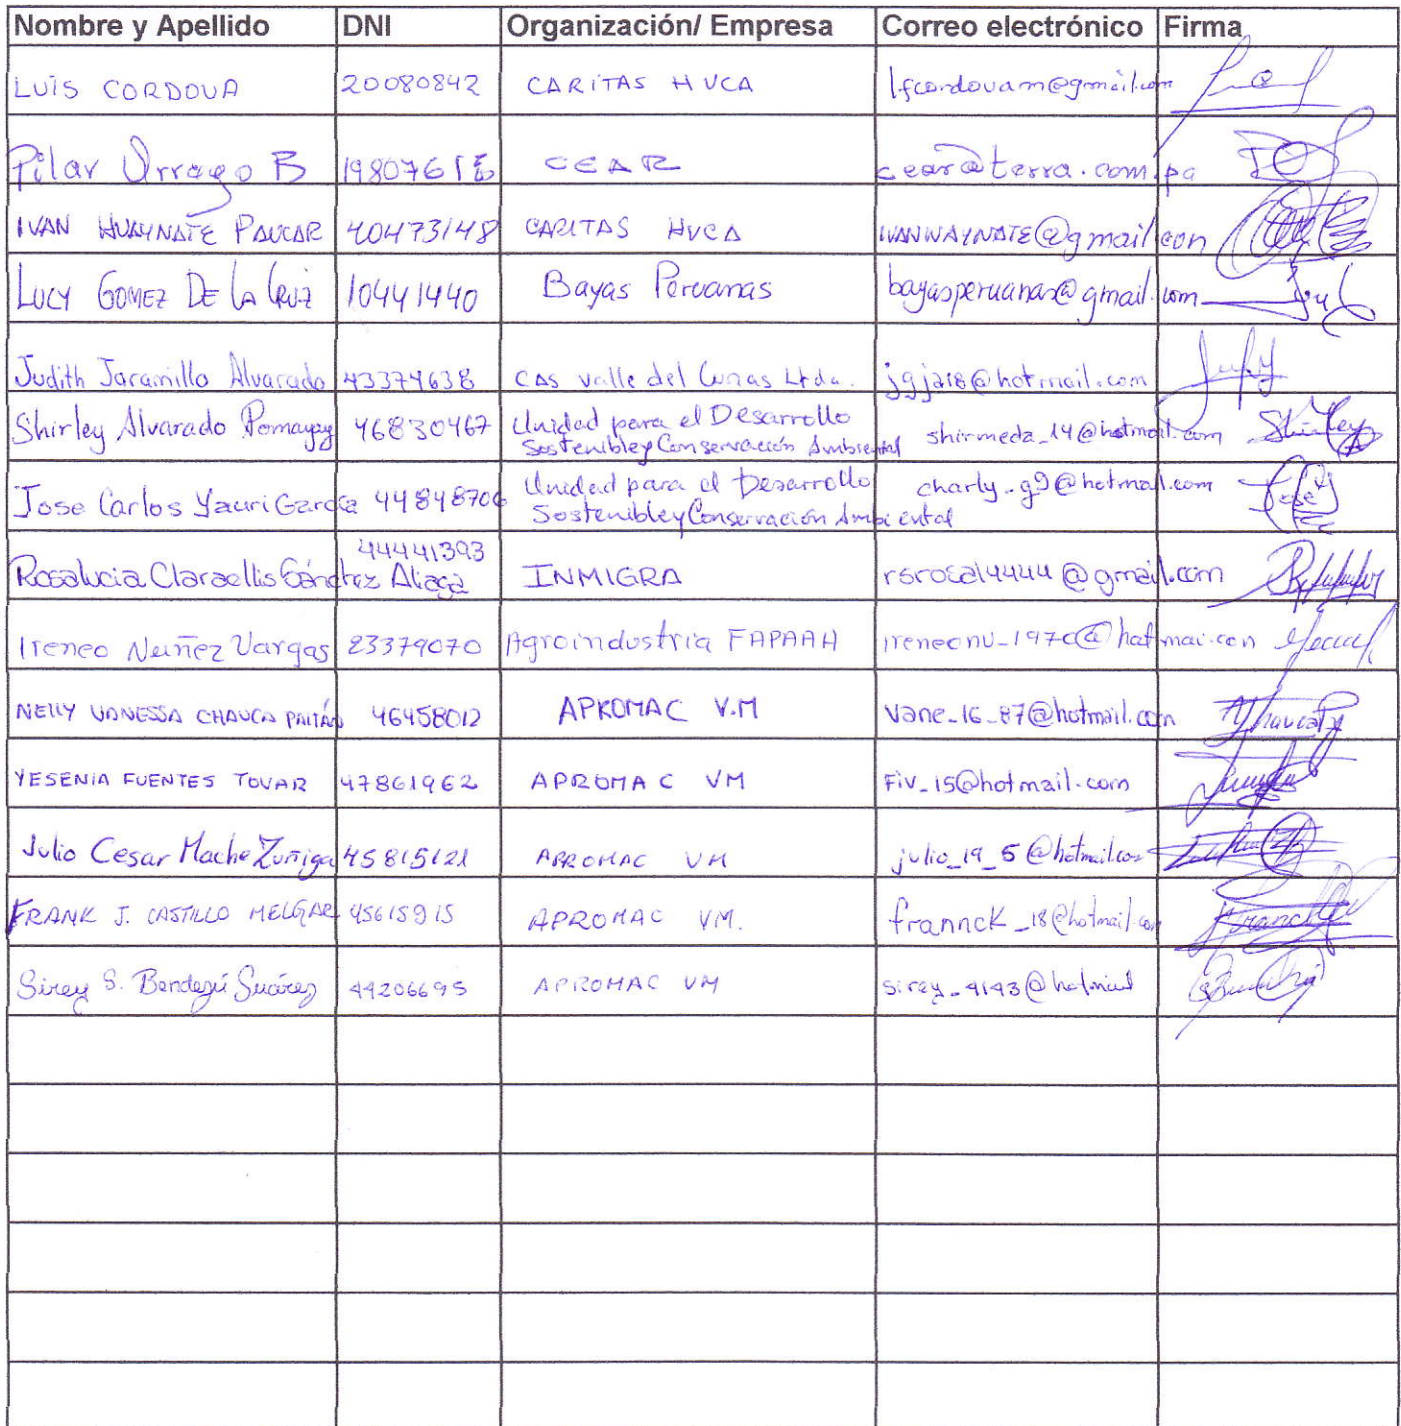 Nombre y Apellido DNI Organización/ Empresa Correo electrónico Firma
LUIS CORDOVA 20080842 CARITAS HVCA lfcordovam@gmail.com
Pilar Orrego B CEAR cear@terra.com.pa
IVAN HUAYNATE PAUCAR 40473148 CARITAS HVCA IVANWAYNATE@gmail.con
LUCY GOMEZ DE LA CRUZ 10441440 Bayas Peruanas bayasperuanas@gmail.com
Judith Jaramillo Alvarado 43374638 CAS valle del Cunas Ltda. jgja18@hotmail.com
Shirley Alvarado Pomayay 46830467 Unidad para el Desarrollo
Sostenible y Conservación Ambiental shirmeda_14@hotmail.com Shirley
Jose Carlos Yauri Garcia 44848706 Unidad para el Desarrollo
Sostenible y Conservación Ambiental charly_g9@hotmail.com Jose
44441393
Rosalucia Claraellis Sánchez Aliaga INMIGRA rsrosal4444@gmail.com
Ireneo Nuñez Vargas 23379070 Agroindustria FAPAAH ireneonv_1970@hatmai.con
NELLY VANESSA CHAUCA PAITÁN 46458012 APROMAC V.M vane_16_87@hotmail.com
YESENIA FUENTES TOVAR 47861962 APROMAC VM Fiv_15@hotmail.com
Julio Cesar Mache Zuñiga 45815121 APROMAC VM julio_19_5@hotmail.com
FRANK J. CASTILLO MELGAR 45615915 APROMAC VM. frannck_18@hotmail.com
Sirey S. Bendezú Suárez 44206695 APROMAC VM sirey_4143@hotmail